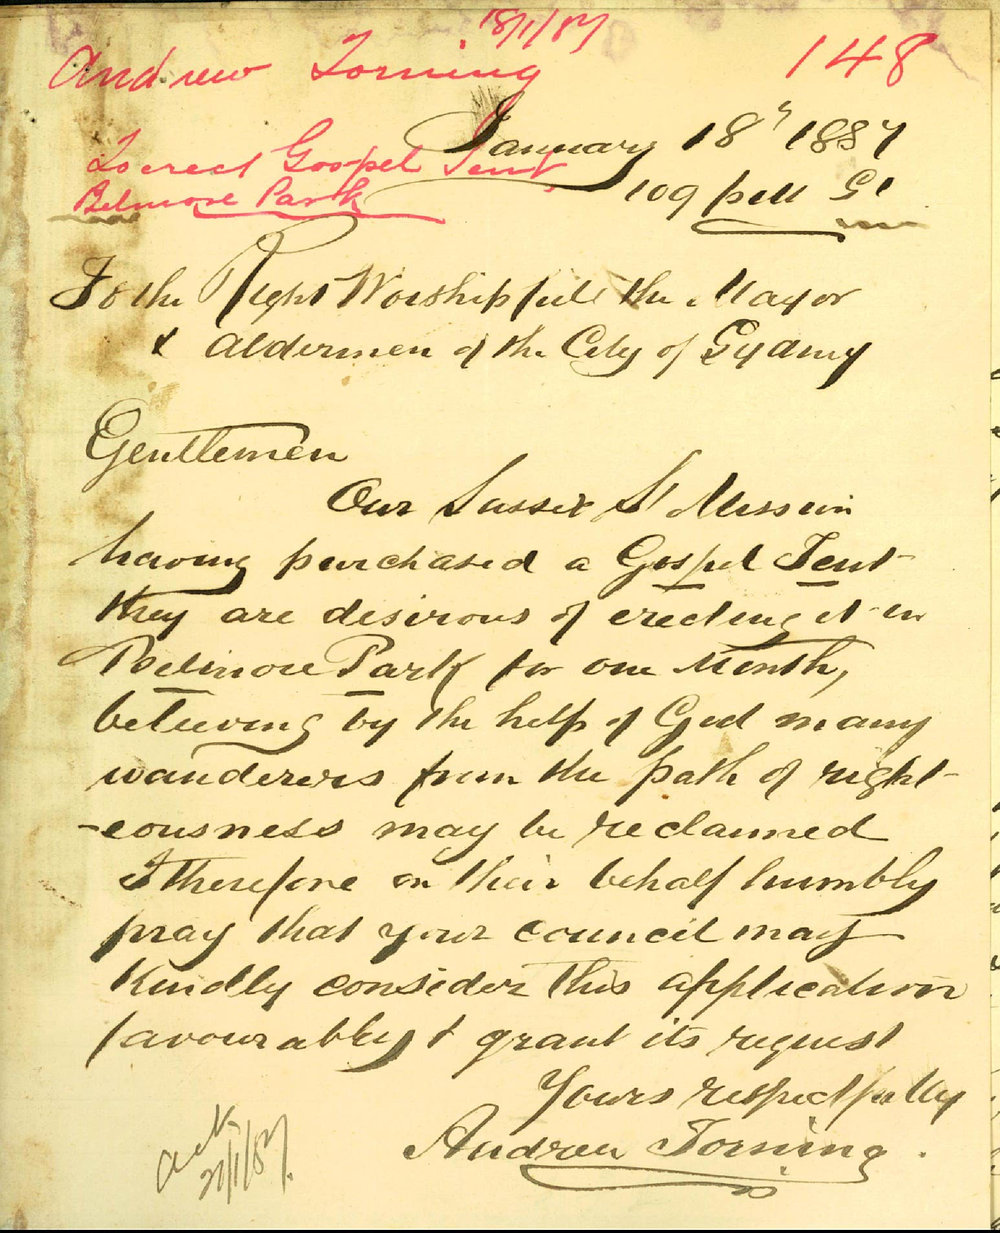 18/1/87
Andrew Torning
148
January 18th 1887
To erect Gospel Tent
Belmore Park
109 pitt St
To the Right Worshipfull the Mayor
& Aldermen of the City of Sydney
Gentlemen
Our Sussex St Mission
having purchased a Gospel Tent
they are desirous of erecting it in
Belmore Park for one Month,
believing by the help of God many
wanderers from the path of right-
-eousness may be reclaimed
I therefore on their behalf humbly
pray that your council may
Kindly consider this application
favourably & grant its request
Yours respectfully
Andrew Torning.
Ack
21/1/87.